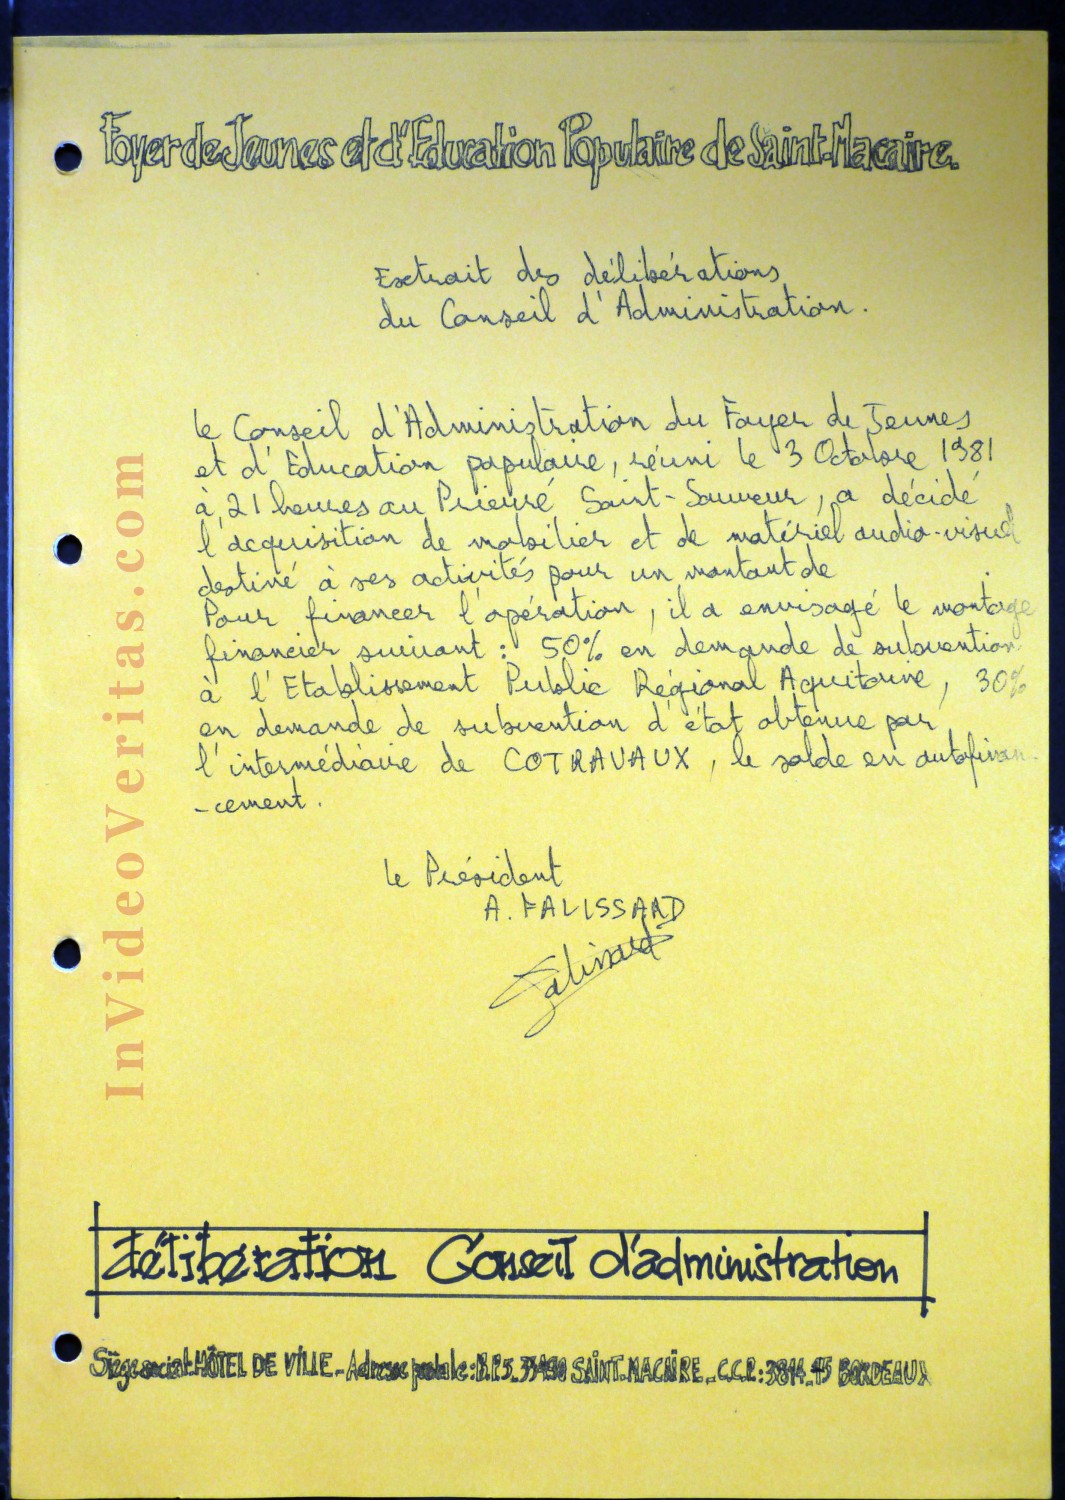 Foyer de Jeunes et d'Education Populaire de Saint-Macaire.
Extrait des délibérations
du Conseil d'Administration.
le Conseil d'Administration du Foyer de Jeunes
et d'Education populaire, réuni le 3 Octobre 1981
à 21 heures au Prieuré Saint-Sauveur, a décidé
l'acquisition de mobilier et de matériel audio-visuel
destiné à ses activités pour un montant de .
Pour financer l'opération, il a envisagé le montage
financier suivant : 50% en demande de subvention
à l'Etablissement Public Régional Aquitaine, 30%
en demande de subvention d'état obtenue par
l'intermédiaire de COTRAVAUX, le solde en autofinan-
-cement.
le Président
A. FALISSARD
Falissard
délibération Conseil d'administration
Siège social: HÔTEL DE VILLE_Adresse postale: B.P.5_33490 SAINT-MACAIRE_C.C.P.: 3814_45 BORDEAUX
InVideoVeritas.com